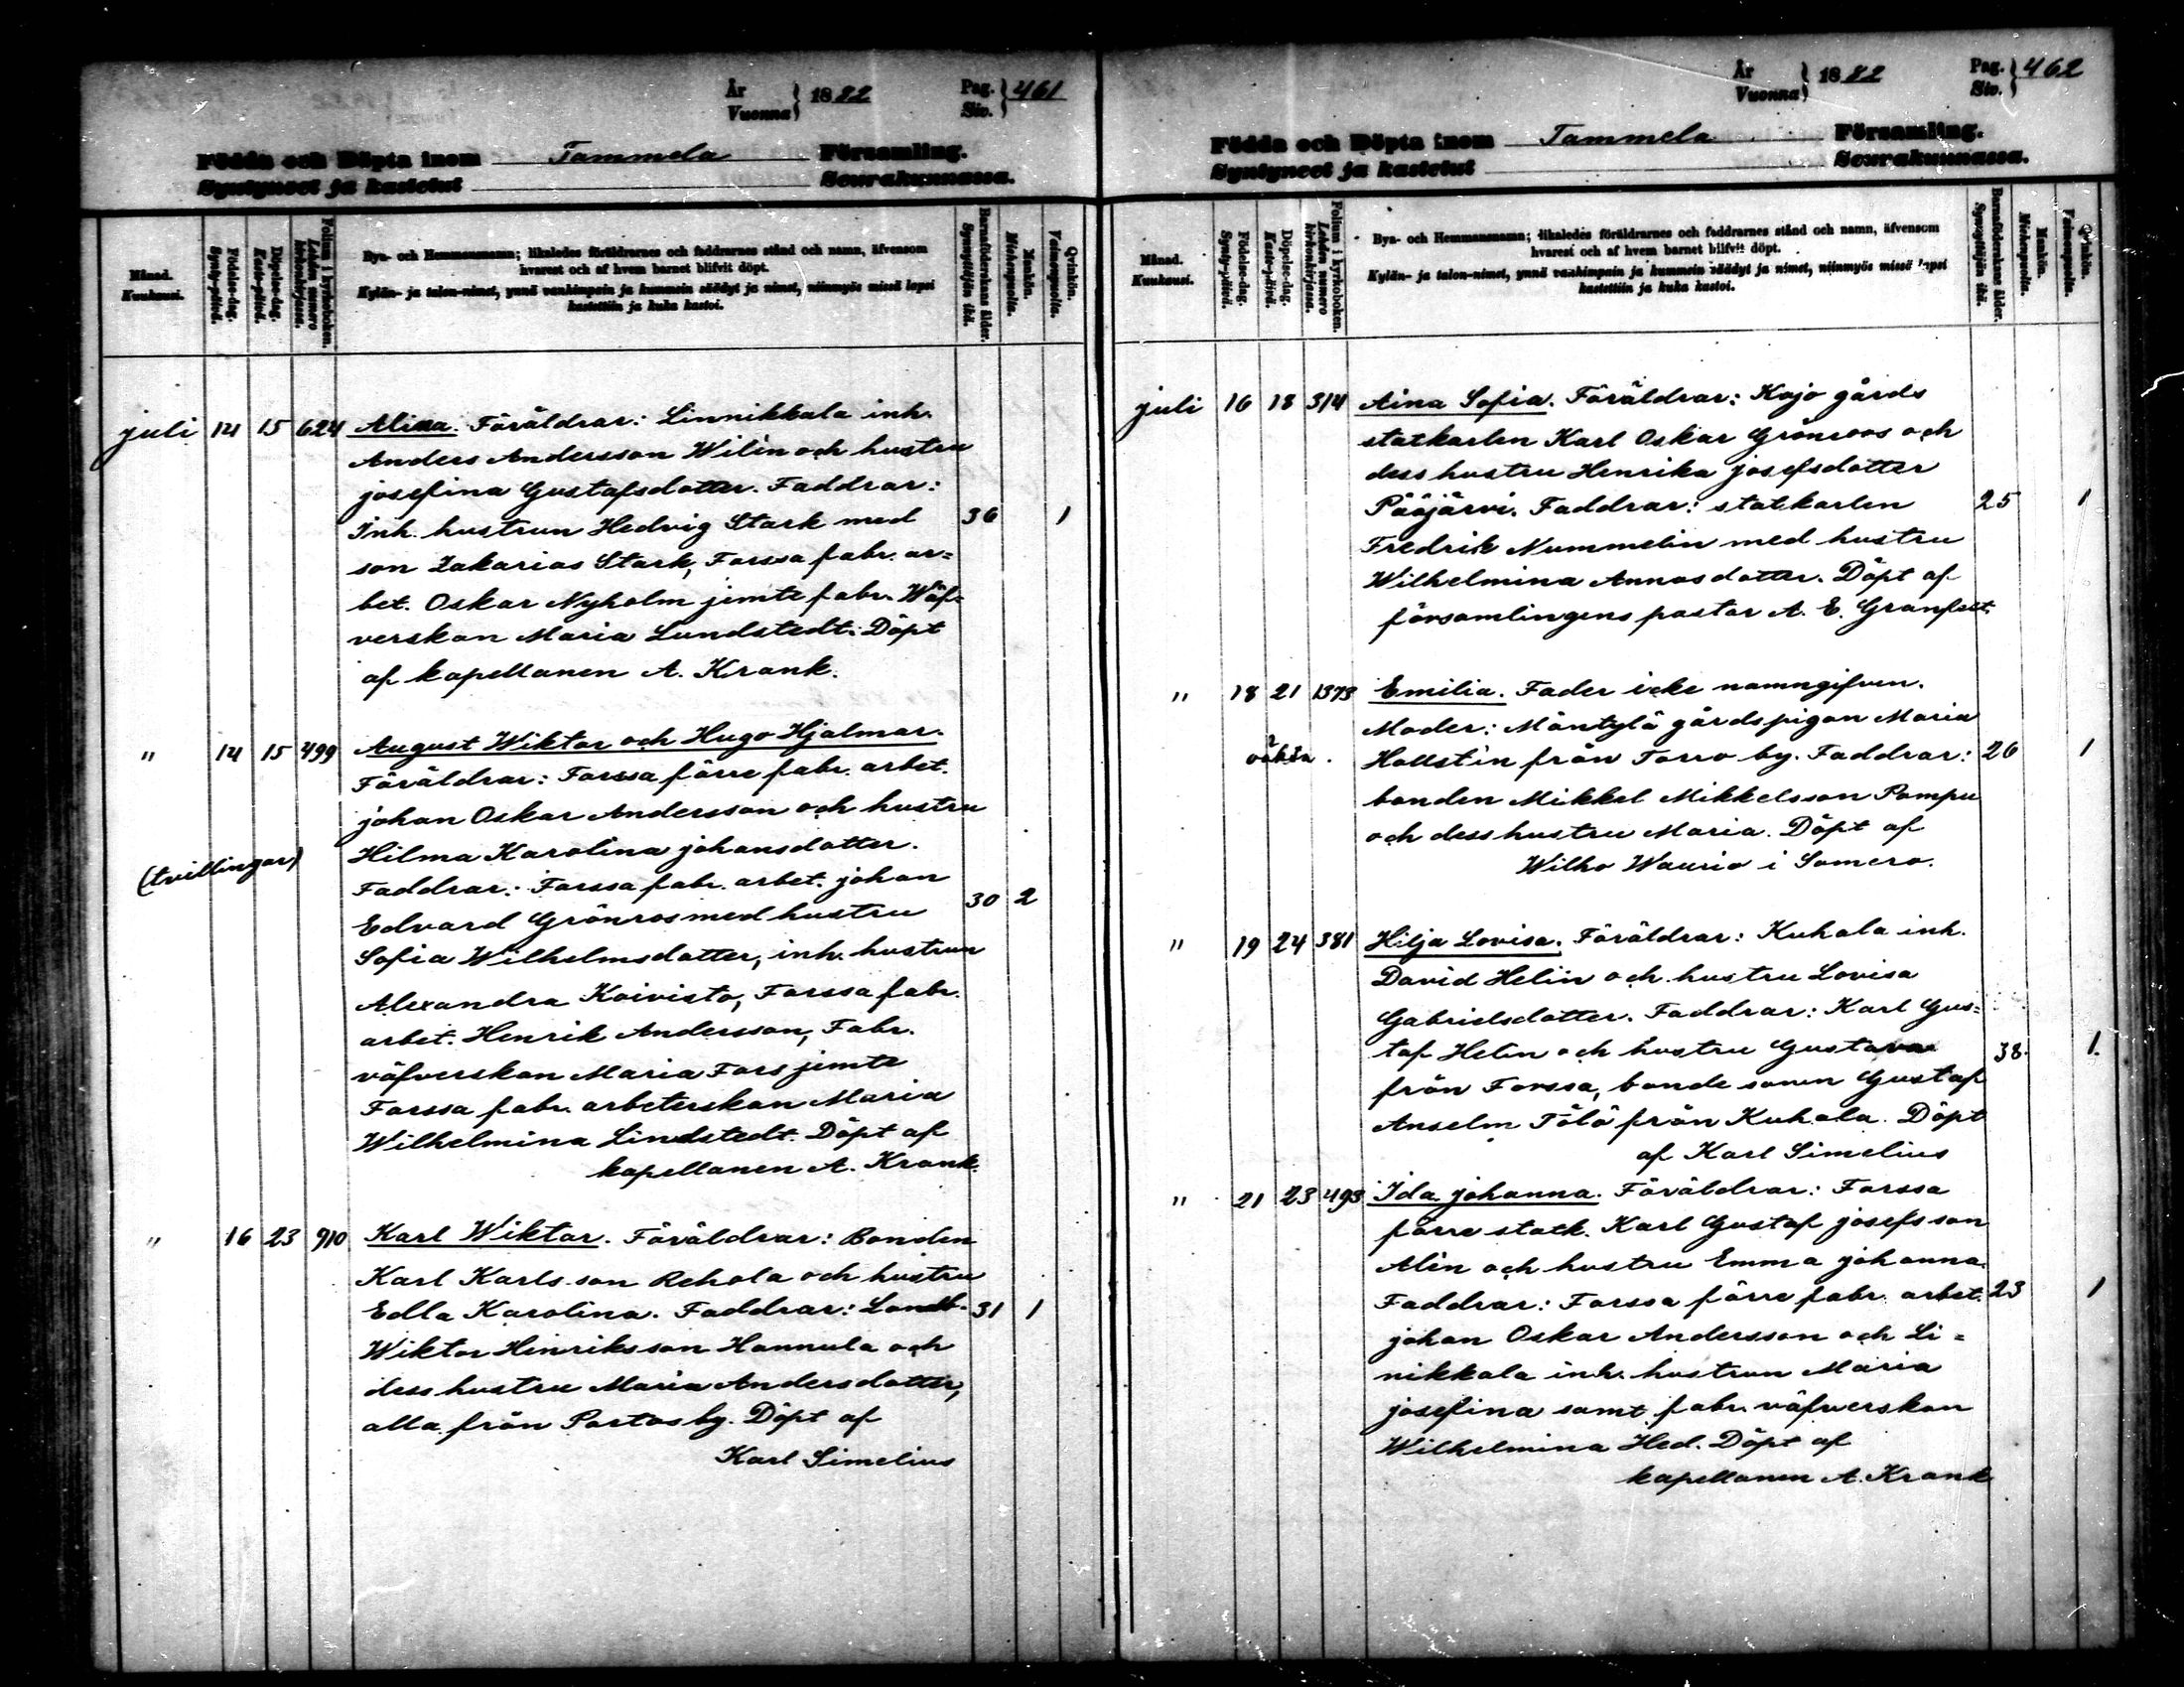 År
Vuonna } 1882
Pag.
Siv. } 461
Födda och Döpta inom Tammela Församling.
Syntyneet ja kastetut Seurakunnassa.
Månad.
Kuukausi.
Födelse-dag.
Synty-päivä.
Döpelse-dag.
Kaste-päivä.
Folium i kyrkoboken.
Lehden numero kirkonkirjassa.
Bya- och Hemmansnamn; likaledes föräldrarnes och faddrarnes stånd och namn, äfvensom
hvarest och af hvem barnet blifvit döpt.
Kylän- ja talon-nimet, ynnä vanhimpain ja kummein säädyt ja nimet, niinmyös missä lapsi
kastettiin ja kuka kastoi.
Barnaföderskans ålder.
Synnyttäjän ikä.
Mankön.
Miehenpuolta.
Qvinkön.
Vaimonpuolta.
juli 14 15 624 Alina. Föräldrar: Linnikkala inh.
Anders Andersson Wilin och hustru
josefina Gustafsdotter. Faddrar:
Inh. hustrun Hedvig Stark med 36 1
son Zakarias Stark, Forssa fabr. ar=
bet. Oskar Nyholm jemte fabr. Wäf=
verskan Maria Lundstedt. Döpt
af kapellanen A. Krank.
" 14 15 499 August Wiktor och Hugo Hjalmar.
Föräldrar: Forssa förre fabr. arbet.
johan Oskar Andersson och hustru
Hilma Karolina johansdotter.
(tvillingar)
Faddrar: Forssa fabr. arbet. johan
Edvard Grönros med hustru 30 2
Sofia Wilhelmsdotter, inh. hustrun
Alexandra Koivisto, Forssa fabr.
arbet. Henrik Andersson, Fabr.
väfverskan Maria Fors jemte
Forssa fabr. arbeterskan Maria
Wilhelmina Lindstedt. Döpt af
kapellanen A. Krank.
" 16 23 910 Karl Wiktor. Föräldrar: Bonden
Karl Karlsson Rehola och hustru
Edla Karolina. Faddrar: Landb. 31 1
Wiktor Hinriksson Hannula och
dess hustru Maria Andersdotter,
alla från Portas by. Döpt af
Karl Simelius
År
Vuonna } 1882
Pag.
Siv. } 462
Födda och Döpta inom Tammela Församling.
Syntyneet ja kastetut Seurakunnassa.
Månad.
Kuukausi.
Födelse-dag.
Synty-päivä.
Döpelse-dag.
Kaste-päivä.
Folium i kyrkoboken.
Lehden numero kirkonkirjassa.
Bya- och Hemmansnamn; likaledes föräldrarnes och faddrarnes stånd och namn, äfvensom
hvarest och af hvem barnet blifvit döpt.
Kylän- ja talon-nimet, ynnä vanhimpain ja kummein säädyt ja nimet, niinmyös missä lapsi
kastettiin ja kuka kastoi.
Barnaföderskans ålder.
Synnyttäjän ikä.
Mankön.
Miehenpuolta.
Qvinkön.
Vaimonpuolta.
juli 16 18 314 Aina Sofia. Föräldrar: Kojo gårds
statkarlen Karl Oskar Grönroos och
dess hustru Henrika josefsdotter
Pääjärvi. Faddrar: statkarlen 25 1
Fredrik Nummelin med hustru
Wilhelmina Annasdotter. Döpt af
församlingens pastor A. E. Granfelt.
" 18 21 1373 Emilia. Fader icke namngifven.
Moder: Mäntylä gårdspigan Maria
oäkta. Hollstin från Torro by. Faddrar: 26 1
bonden Mikkel Mikkelsson Pompu
och dess hustru Maria. Döpt af
Wilho Waurio i Somero.
" 19 24 381 Hilja Lovisa. Föräldrar: Kuhala inh.
David Helin och hustru Lovisa
Gabrielsdotter. Faddrar: Karl Gus=
taf Helin och hustru Gustava 38. 1.
från Forssa, bonde sonen Gustaf
Anselm Tölö från Kuhala. Döpt
af Karl Simelius
" 21 23 493 Ida johanna. Föräldrar: Forssa
förre statk. Karl Gustaf josefsson
Alin och hustru Emma johanna.
Faddrar: Forssa förre fabr. arbet. 23 1
johan Oskar Andersson och Li=
nikkala inh. hustrun Maria
josefina samt fabr. väfverskan
Wilhelmina Hed. Döpt af
kapellanen A. Krank